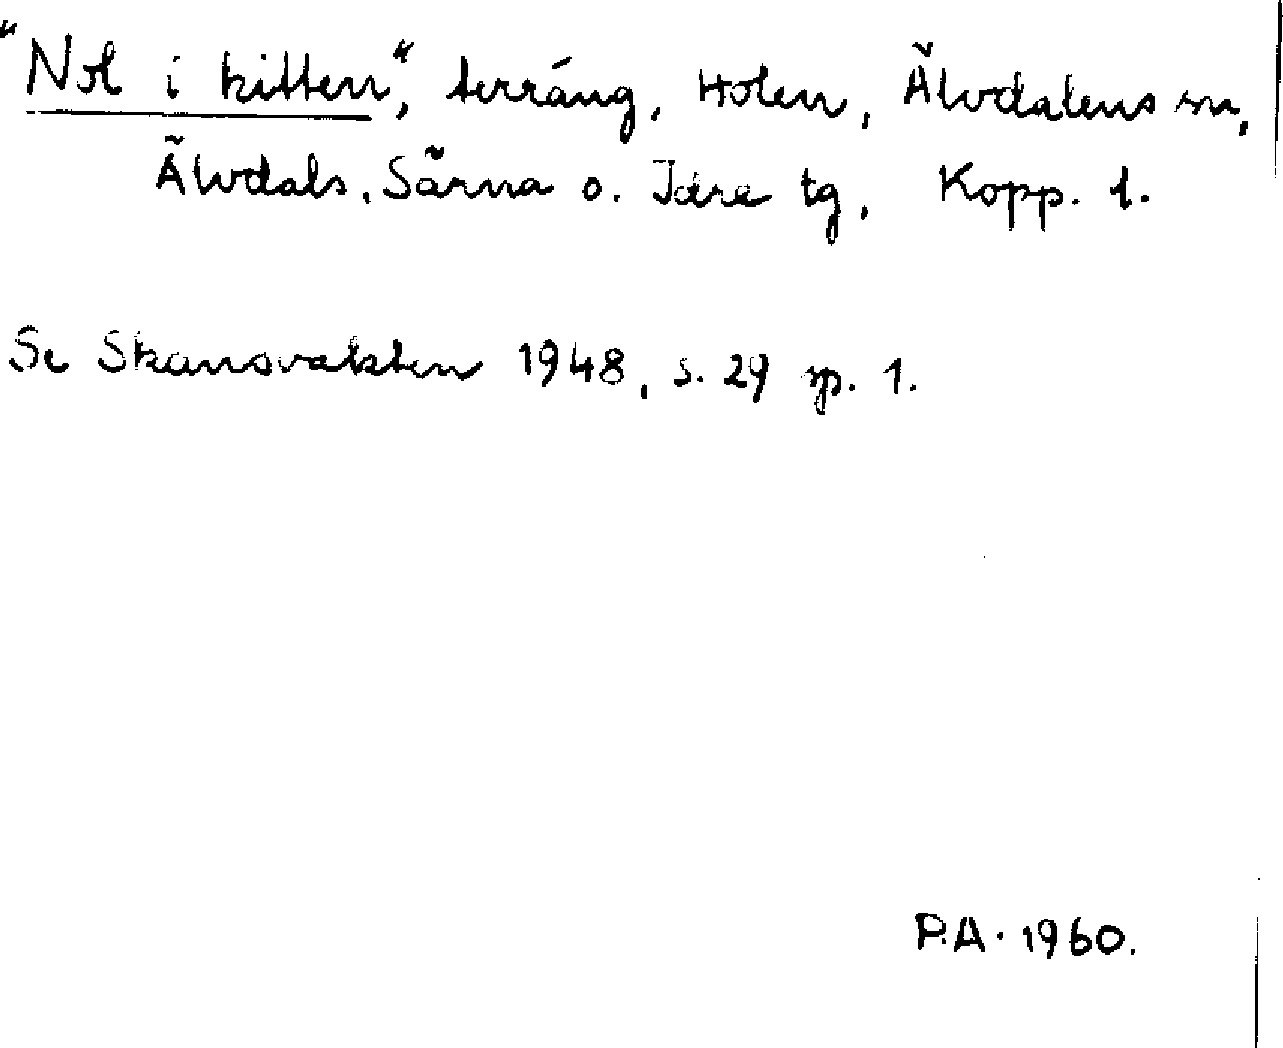 "Nol i kitten", terräng, Holen, Älvdalens sn,
Älvdals, Särna o. Idre tg, Kopp. l.
Se Skansvakten 1948, s. 29 sp. 1.
P.A. 1960.